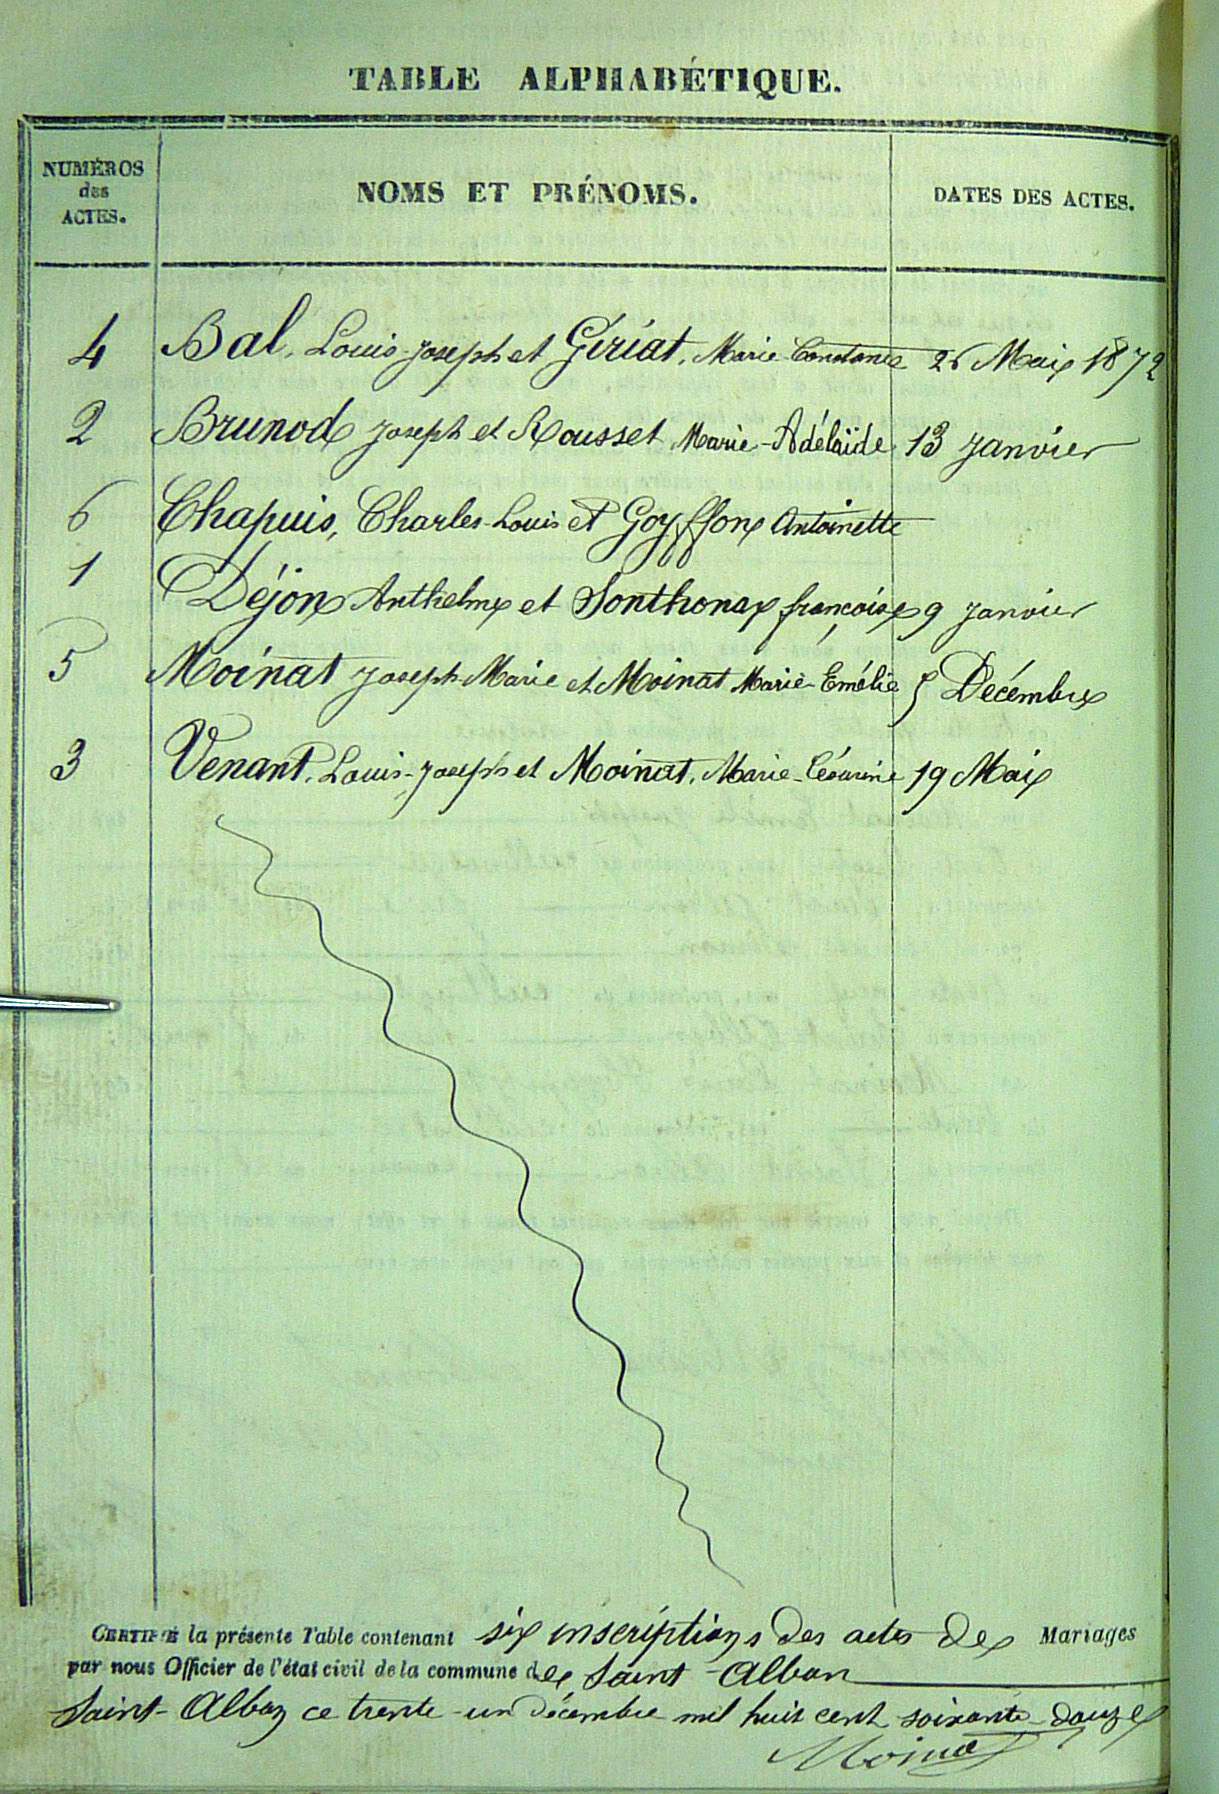 TABLE ALPHABÉTIQUE.
NUMÉROS
des
ACTES.
NOMS ET PRÉNOMS.
DATES DES ACTES.
4 Bal, Louis-Joseph et Gériat, Marie Constance 26 Mai 1872
2 Brunod Joseph et Rousset Marie-Adélaïde 13 janvier
6 Chapuis, Charles-Louis et Goyffon Antoinette
1 Déjon Anthelme et Sonthonax françoise 9 janvier
5 Moinat Joseph-Marie et Moinat Marie-Emélie 5 Décembre
3 Venant, Louis-Joseph et Moinat, Marie-Césarine 19 Mai
CERTIFIÉ la présente Table contenant six inscriptions des actes de Mariages
par nous Officier de l'état civil de la commune de Saint-Alban
Saint-Alban ce trente-un décembre mil huit cent soixante-douze
Moinat